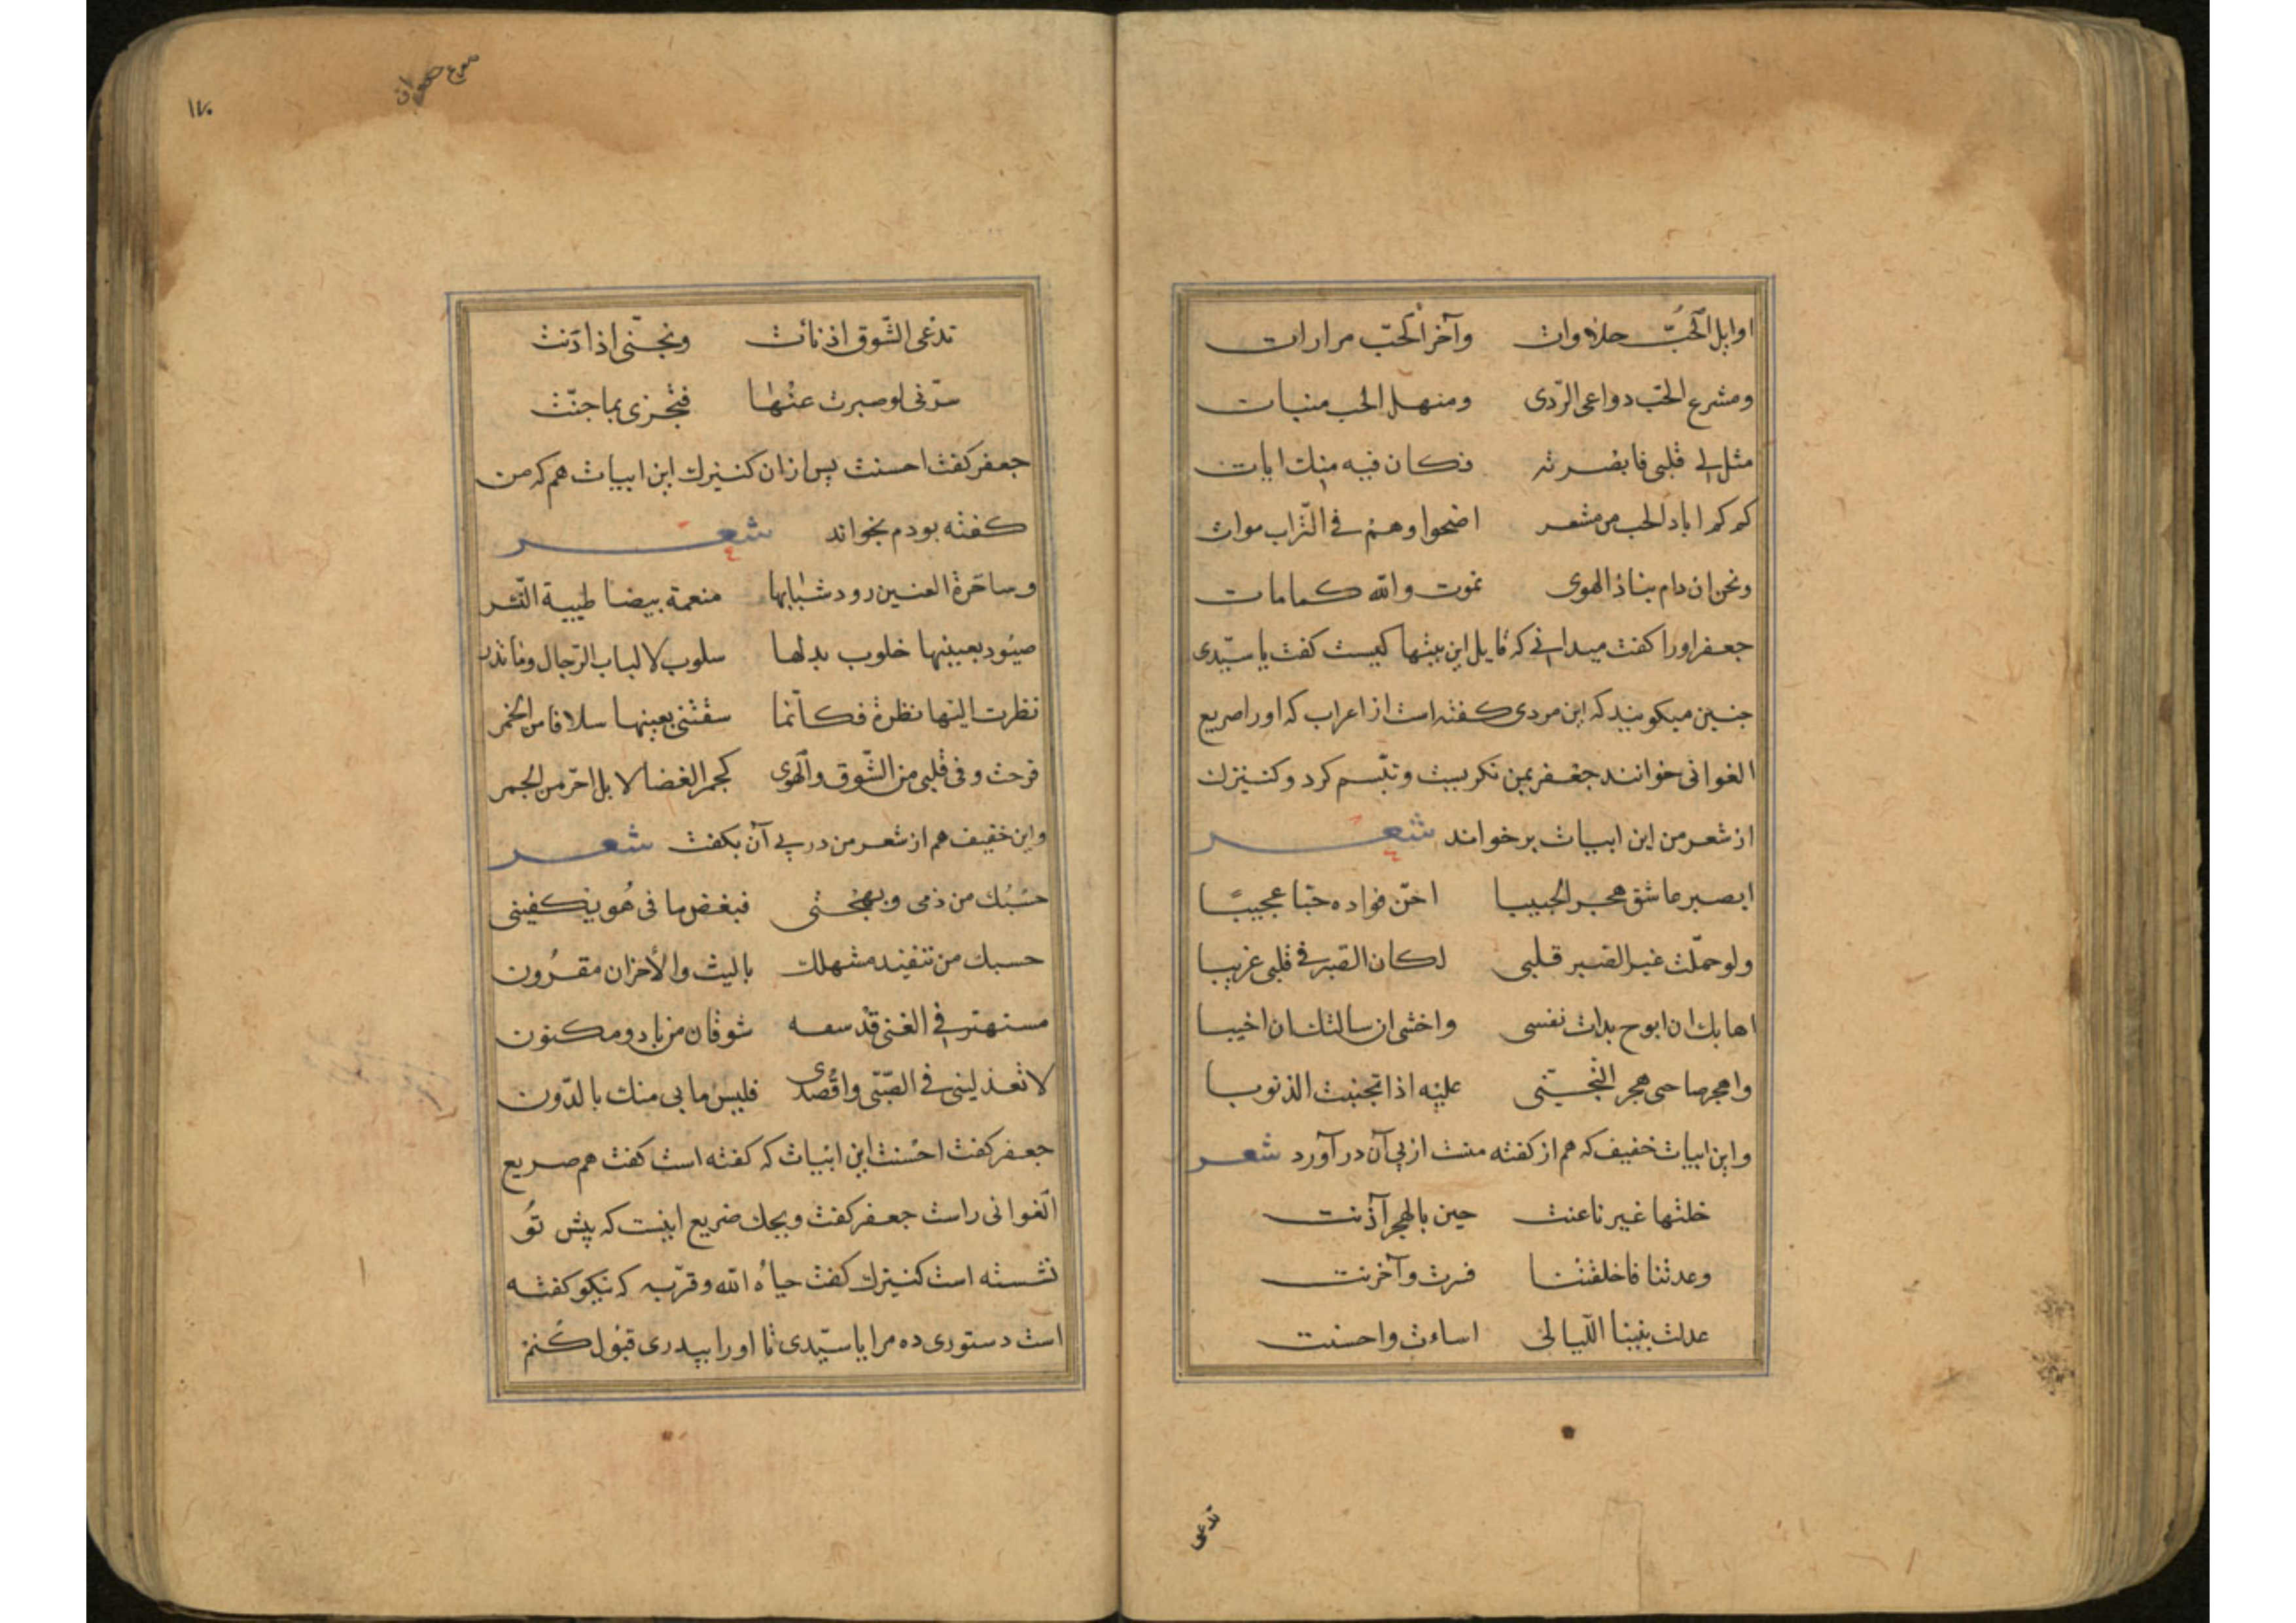 اوایل الحُبّ حلاوات وآخر الحبّ مرارات
ومشرع الحبّ دواعی الرّدی ومنهل الحب منیات
مثل لی قلبی فابصرته فکان فیه منک ایات
کم کم اباد الحب من مشعر اضحوا وهم فی التّراب موات
ونحن ان دام بنا ذا الهوی نموت والله کما مات
جعفر اورا کفت میدانی که قایل این بیتها کیست کفت یا سیّدی
جنین میکویند که این مردی کفته است از اعراب که اورا صریع
الغوانی خوانند جعفر بمن نکریست وتبّسم کرد وکنیزک
از شعر من این ابیات برخواند شعر
ایصبر عاشق هجر الحبیبا اجنّ فواده حبّا عجیبًا
ولو حمّلت غیر القبر قلبی لکان القبر فی قلبی غریبا
اهابک ان ابوح بذات نفسی واخشی ان سالتک ان اخیبا
واهجر صاحبی هجر التجنّی علیه اذا تجنبت الذنوبا
واین ابیات خفیف که هم از کفته منت از پی آن درآورد شعر
خلتها غیر ناعنت حین بالهجر آذنت
وعدتنا فاخلفتنا فرت وآخرنت
عدلت بیننا اللّیالی اساءت واحسنت
تدعی
۱۷۰
تدعی الشّوق اذ نأت وتجنّی اذا دَنت
سرّنی لو صبرت عنها فتجزی بما جنّت
جعفر کفت احسنت پس ازان کنیزک این ابیات هم که من
کفته بودم بخواند شعر
وساحرة العینین رود شبابها منعمة بیضا طیبیة النّشر
صیُود بعینیها خلوب بدلها سلوب لالباب الرّجال وما تدر
نظرت الیها نظرة فکانّما سقتنی بعینها سلافا من الخمر
فرحت وفی قلبی من الشّوق والهوی کجمر الغضا لا بل احرّ من الجمر
واین خفیف هم از شعر من در پی آن بکفت شعر
حسبُک من ذمی وبهجتی فبغض ما فی هُو یکفینی
حسبک من تنفید مشهلک بالیث والأحزان مقرُون
مستهتر فی الغنی قد سعه شوقان من باد ومکنون
لا تعذلینی فی الصّبّی واقصدی فلیس ما بی منک بالدّون
جعفر کفت احسنت این ابیات که کفته است کفت هم صریع
الغوانی راست جعفر کفت ویحک صریع اینست که پیش تو
نشسته است کنیزک کفت حیاهُ الله وقرّبه که نیکو کفته
است دستوری ده مرا یا سیّدی تا اورا بپدری قبول کُنم